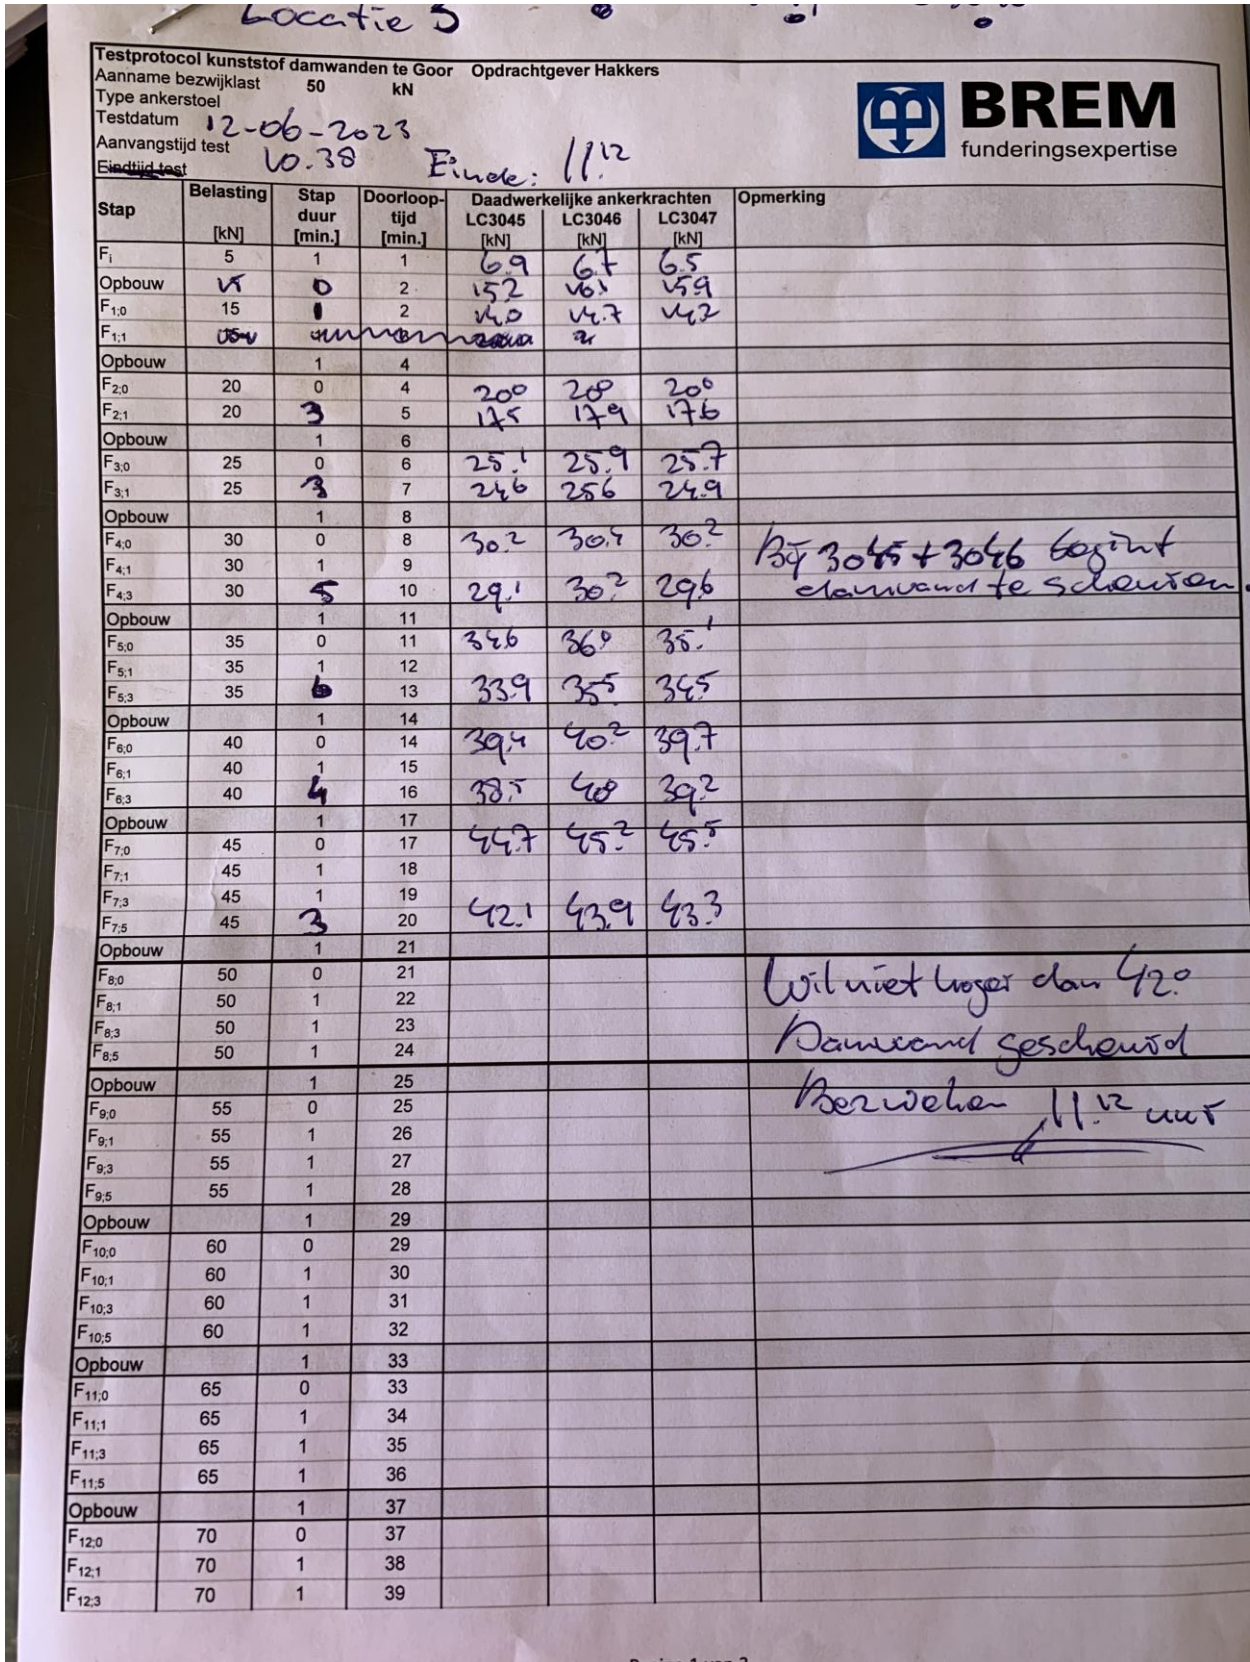 Locatie 3
Testprotocol kunststof damwanden te Goor Opdrachtgever Hakkers
Aanname bezwijklast 50 kN
Type ankerstoel
Testdatum 12-06-2023
Aanvangstijd test 10.38 Einde: 11.12
Eindtijd test
BREM
funderingsexpertise
Stap Belasting [kN] Stap duur [min.] Doorloop-tijd [min.] Daadwerkelijke ankerkrachten Opmerking
LC3045 [kN] LC3046 [kN] LC3047 [kN]
Fi 5 1 1 6.9 6.7 6.5
Opbouw 15 0 2 15.2 16.1 15.9
F1;0 15 1 2 14.0 14.7 14.2
F1;1
Opbouw 1 4
F2;0 20 0 4 20.0 20.0 20.0
F2;1 20 3 5 17.5 17.9 17.6
Opbouw 1 6
F3;0 25 0 6 25.1 25.9 25.7
F3;1 25 3 7 24.6 25.6 24.9
Opbouw 1 8
F4;0 30 0 8 30.2 30.4 30.2 Bij 3045 + 3046 begint
F4;1 30 1 9
F4;3 30 5 10 29.1 30.2 29.6 damwand te scheuren.
Opbouw 1 11
F5;0 35 0 11 34.6 36.0 35.1
F5;1 35 1 12
F5;3 35 6 13 33.9 35.5 34.5
Opbouw 1 14
F6;0 40 0 14 39.4 40.2 39.7
F6;1 40 1 15
F6;3 40 4 16 38.5 40 39.2
Opbouw 1 17
F7;0 45 0 17 44.7 45.2 45.5
F7;1 45 1 18
F7;3 45 1 19
F7;5 45 3 20 42.1 43.9 43.3
Opbouw 1 21
F8;0 50 0 21 Wil niet hoger dan 42.0
F8;1 50 1 22
F8;3 50 1 23 Damwand gescheurd
F8;5 50 1 24
Opbouw 1 25 Bezweken 11.12 uur
F9;0 55 0 25
F9;1 55 1 26
F9;3 55 1 27
F9;5 55 1 28
Opbouw 1 29
F10;0 60 0 29
F10;1 60 1 30
F10;3 60 1 31
F10;5 60 1 32
Opbouw 1 33
F11;0 65 0 33
F11;1 65 1 34
F11;3 65 1 35
F11;5 65 1 36
Opbouw 1 37
F12;0 70 0 37
F12;1 70 1 38
F12;3 70 1 39